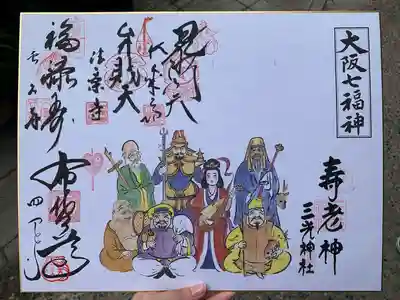 大阪七福神
寿老神
三光神社
毘沙門天
大乗坊
弁財天
法案寺
福禄寿
長久寺
布袋尊
四天王寺